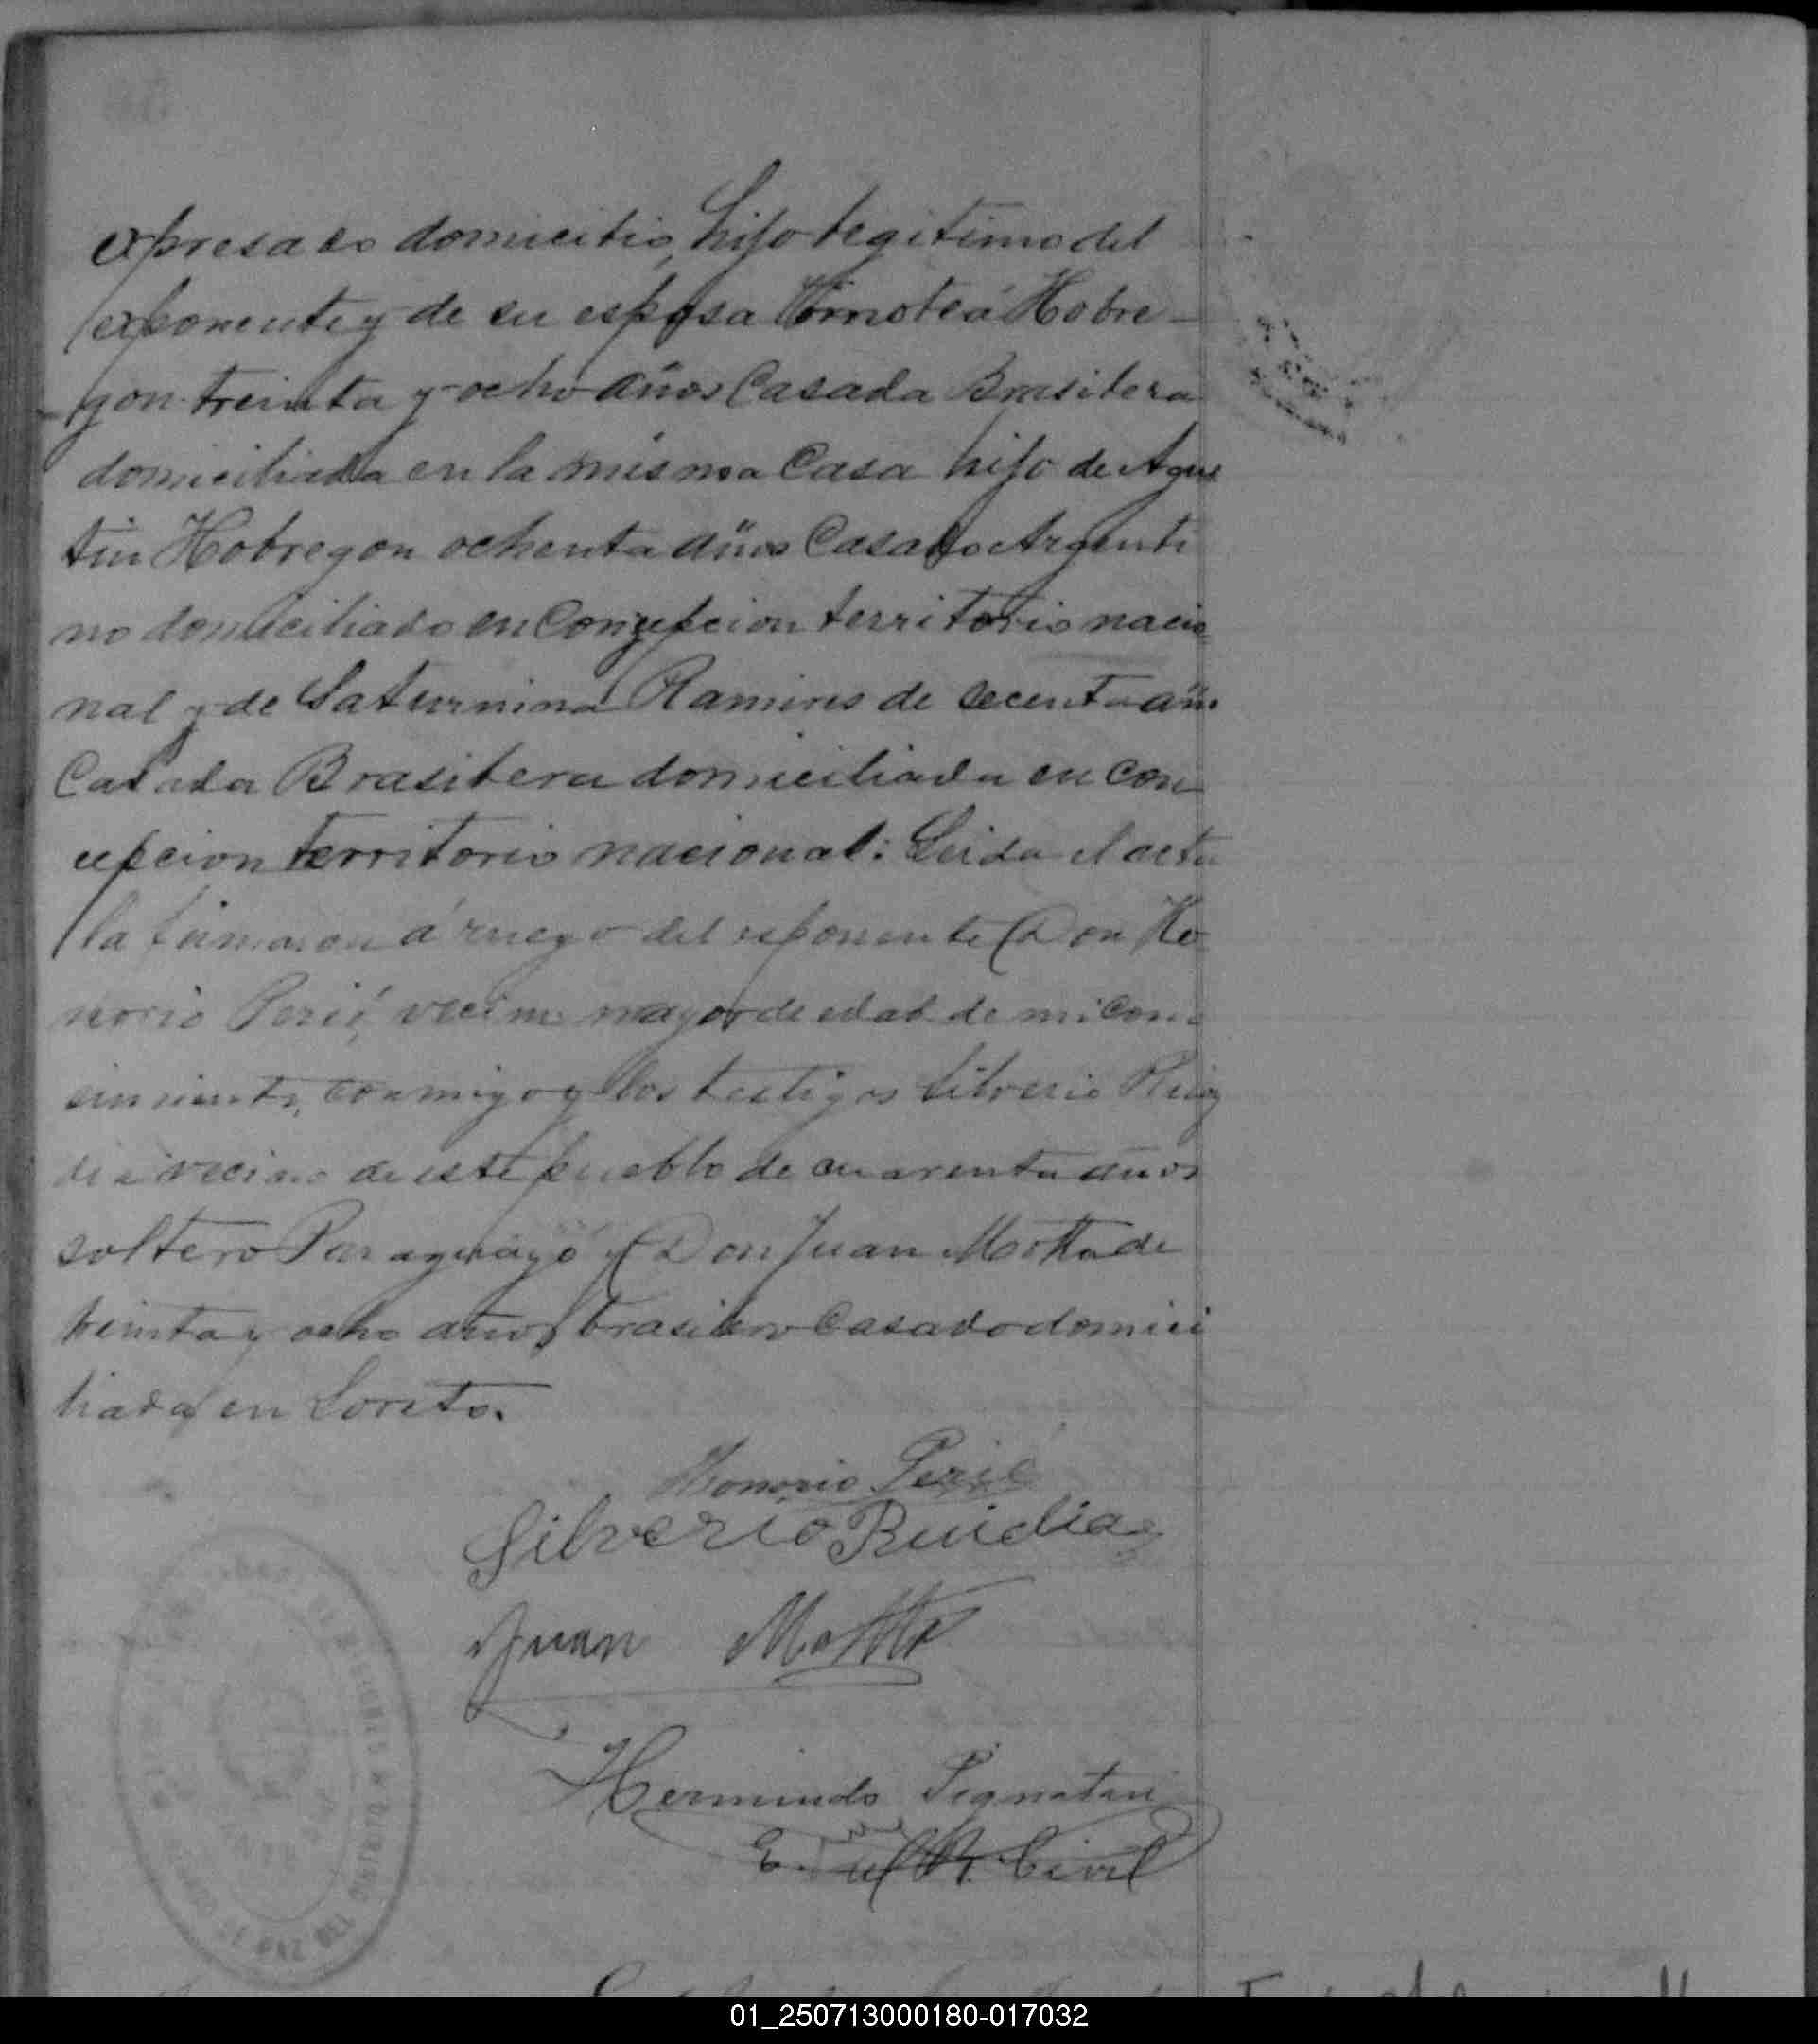 expresado domicilio, hijo legitimo del
exponente y de su esposa Timotea Hobre-
gon treinta y ocho años Casada Brasilera
domiciliada en la misma Casa hijo de Agus
tin Hobregon ochenta años Casado Argenti
no domiciliado en Concepcion territorio nacio
nal y de Saturnina Ramires de secenta años
Casada Brasilera domiciliada en Con
cepcion territorio nacional: Leida el acta
la firmaron á ruego del esponente Don Ho
norio Perié, vecino mayor de edad de mi cono
cimiento, conmigo y los testigos Silverio Rui
dia vecino de este pueblo de cuarenta años
soltero Paraguayo y Don Juan Motta de
treinta y ocho años brasilero Casado domici
liado en Loreto.
Honorio Perié
Silverio Ruidia
Juan Motta
Hermindo Pignatari
E. del R. Civil
01_250713000180-017032